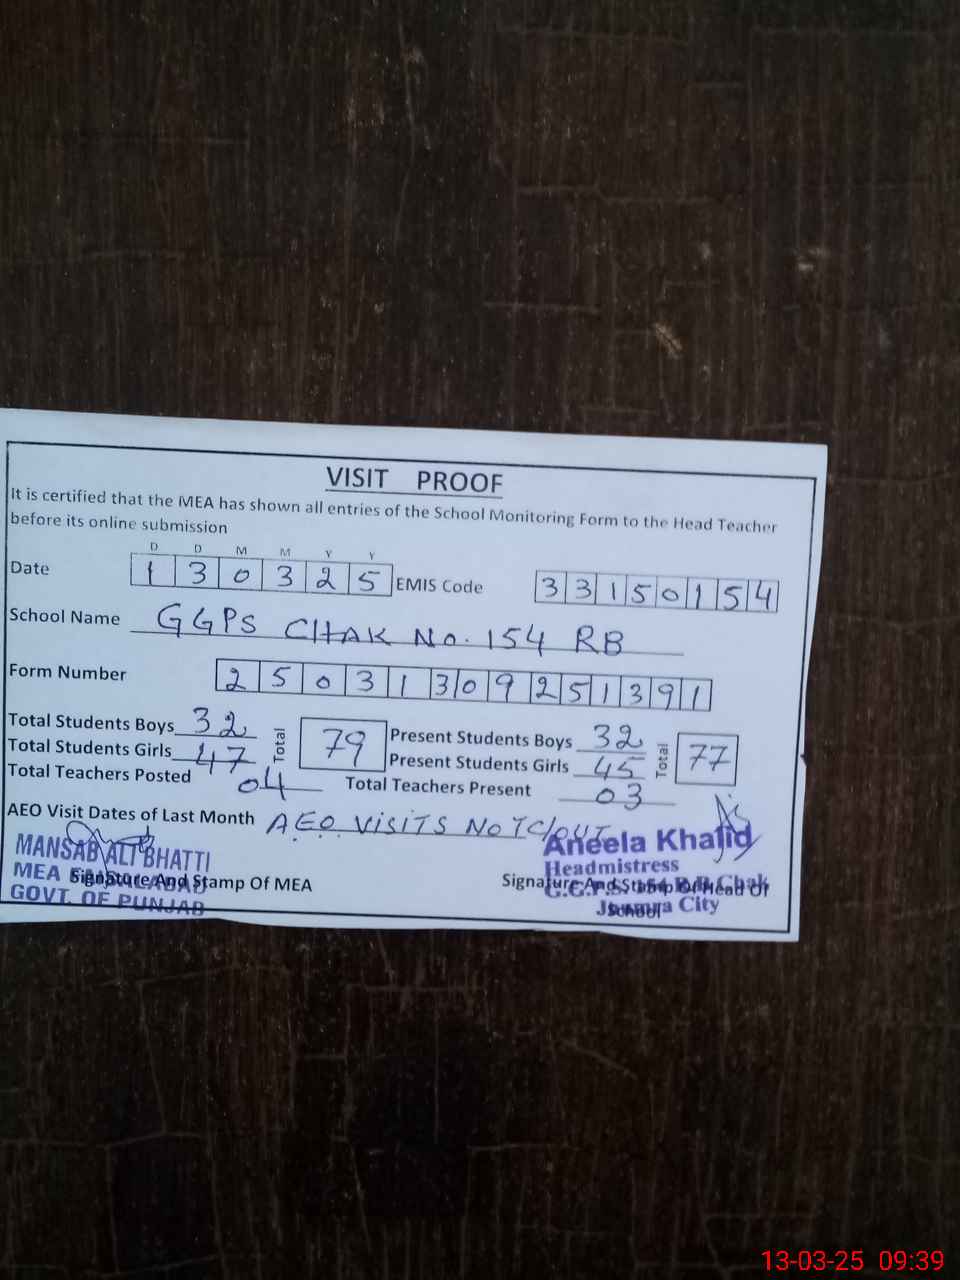 VISIT PROOF
It is certified that the MEA has shown all entries of the School Monitoring Form to the Head Teacher
before its online submission
D D M M Y Y
Date 1 3 0 3 2 5 EMIS Code 3 3 1 5 0 1 5 4
School Name GGPS CHAK No. 154 RB
Form Number 2 5 0 3 1 3 0 9 2 5 1 3 9 1
Total Students Boys 32 Total 79 Present Students Boys 32 Total 77
Total Students Girls 47 Present Students Girls 45
Total Teachers Posted 04 Total Teachers Present 03
AEO Visit Dates of Last Month AEO VISITS NOT
MANSAB ALI BHATTI Aneela Khalid
MEA FAISALABAD Headmistress
Signature And Stamp Of MEA Signature And Stamp Of Head Of
School
GOVT. OF PUNJAB City
13-03-25 09:39